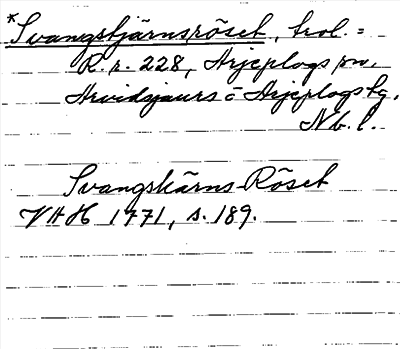 *Svangstjärnsröset, trol. =
R.r. 228, Arjeplogs sn,
Arvidsjaurs o Arjeplogs tg,
Nb. l.
Svangskärns-Röset
VAH 1771, s. 189.